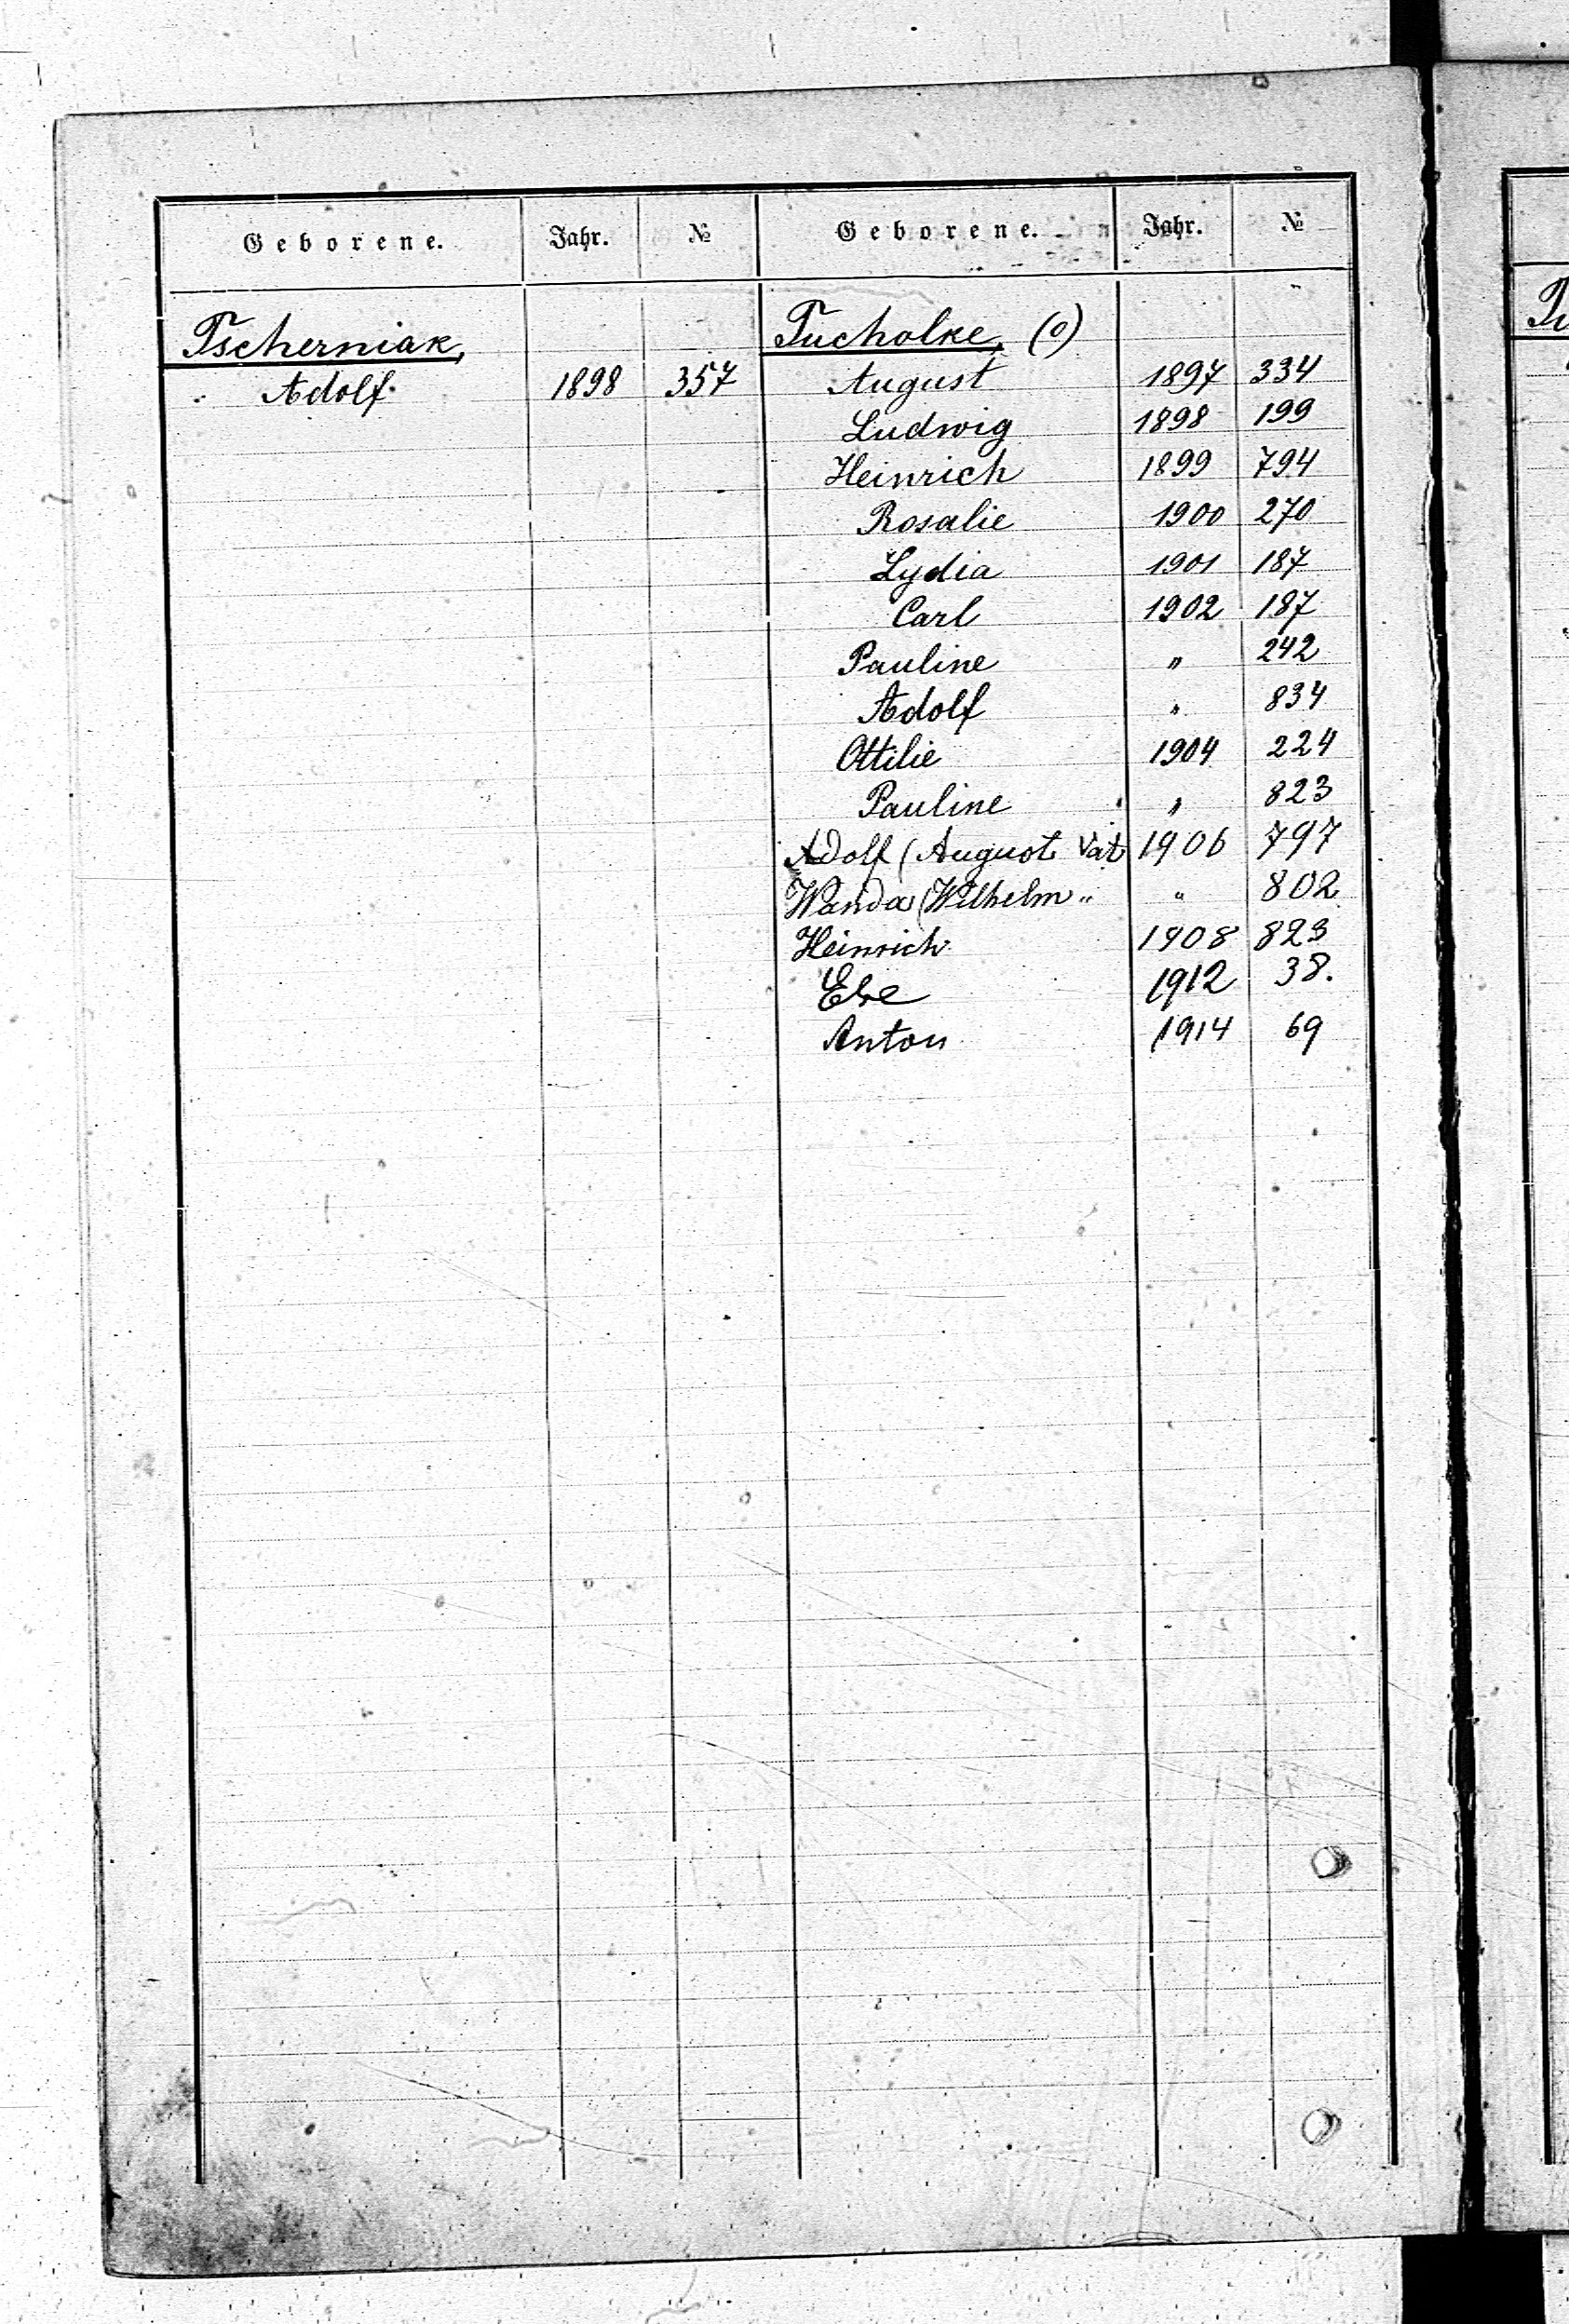 Geborene. Jahr. №
Tscherniak,
Adolf. 1898 357
Geborene. Jahr. №
Tucholke, (o)
August 1897 334
Ludwig 1898 199
Heinrich 1899 794
Rosalie 1900 270
Lydia 1901 187
Carl 1902 187
Pauline " 242
Adolf " 834
Ottilie 1904 224
Pauline " 823
Adolf (August Vat 1906 797
Wanda (Wilhelm " " 802
Heinrich 1908 823
1912 38.
Anton 1914 69